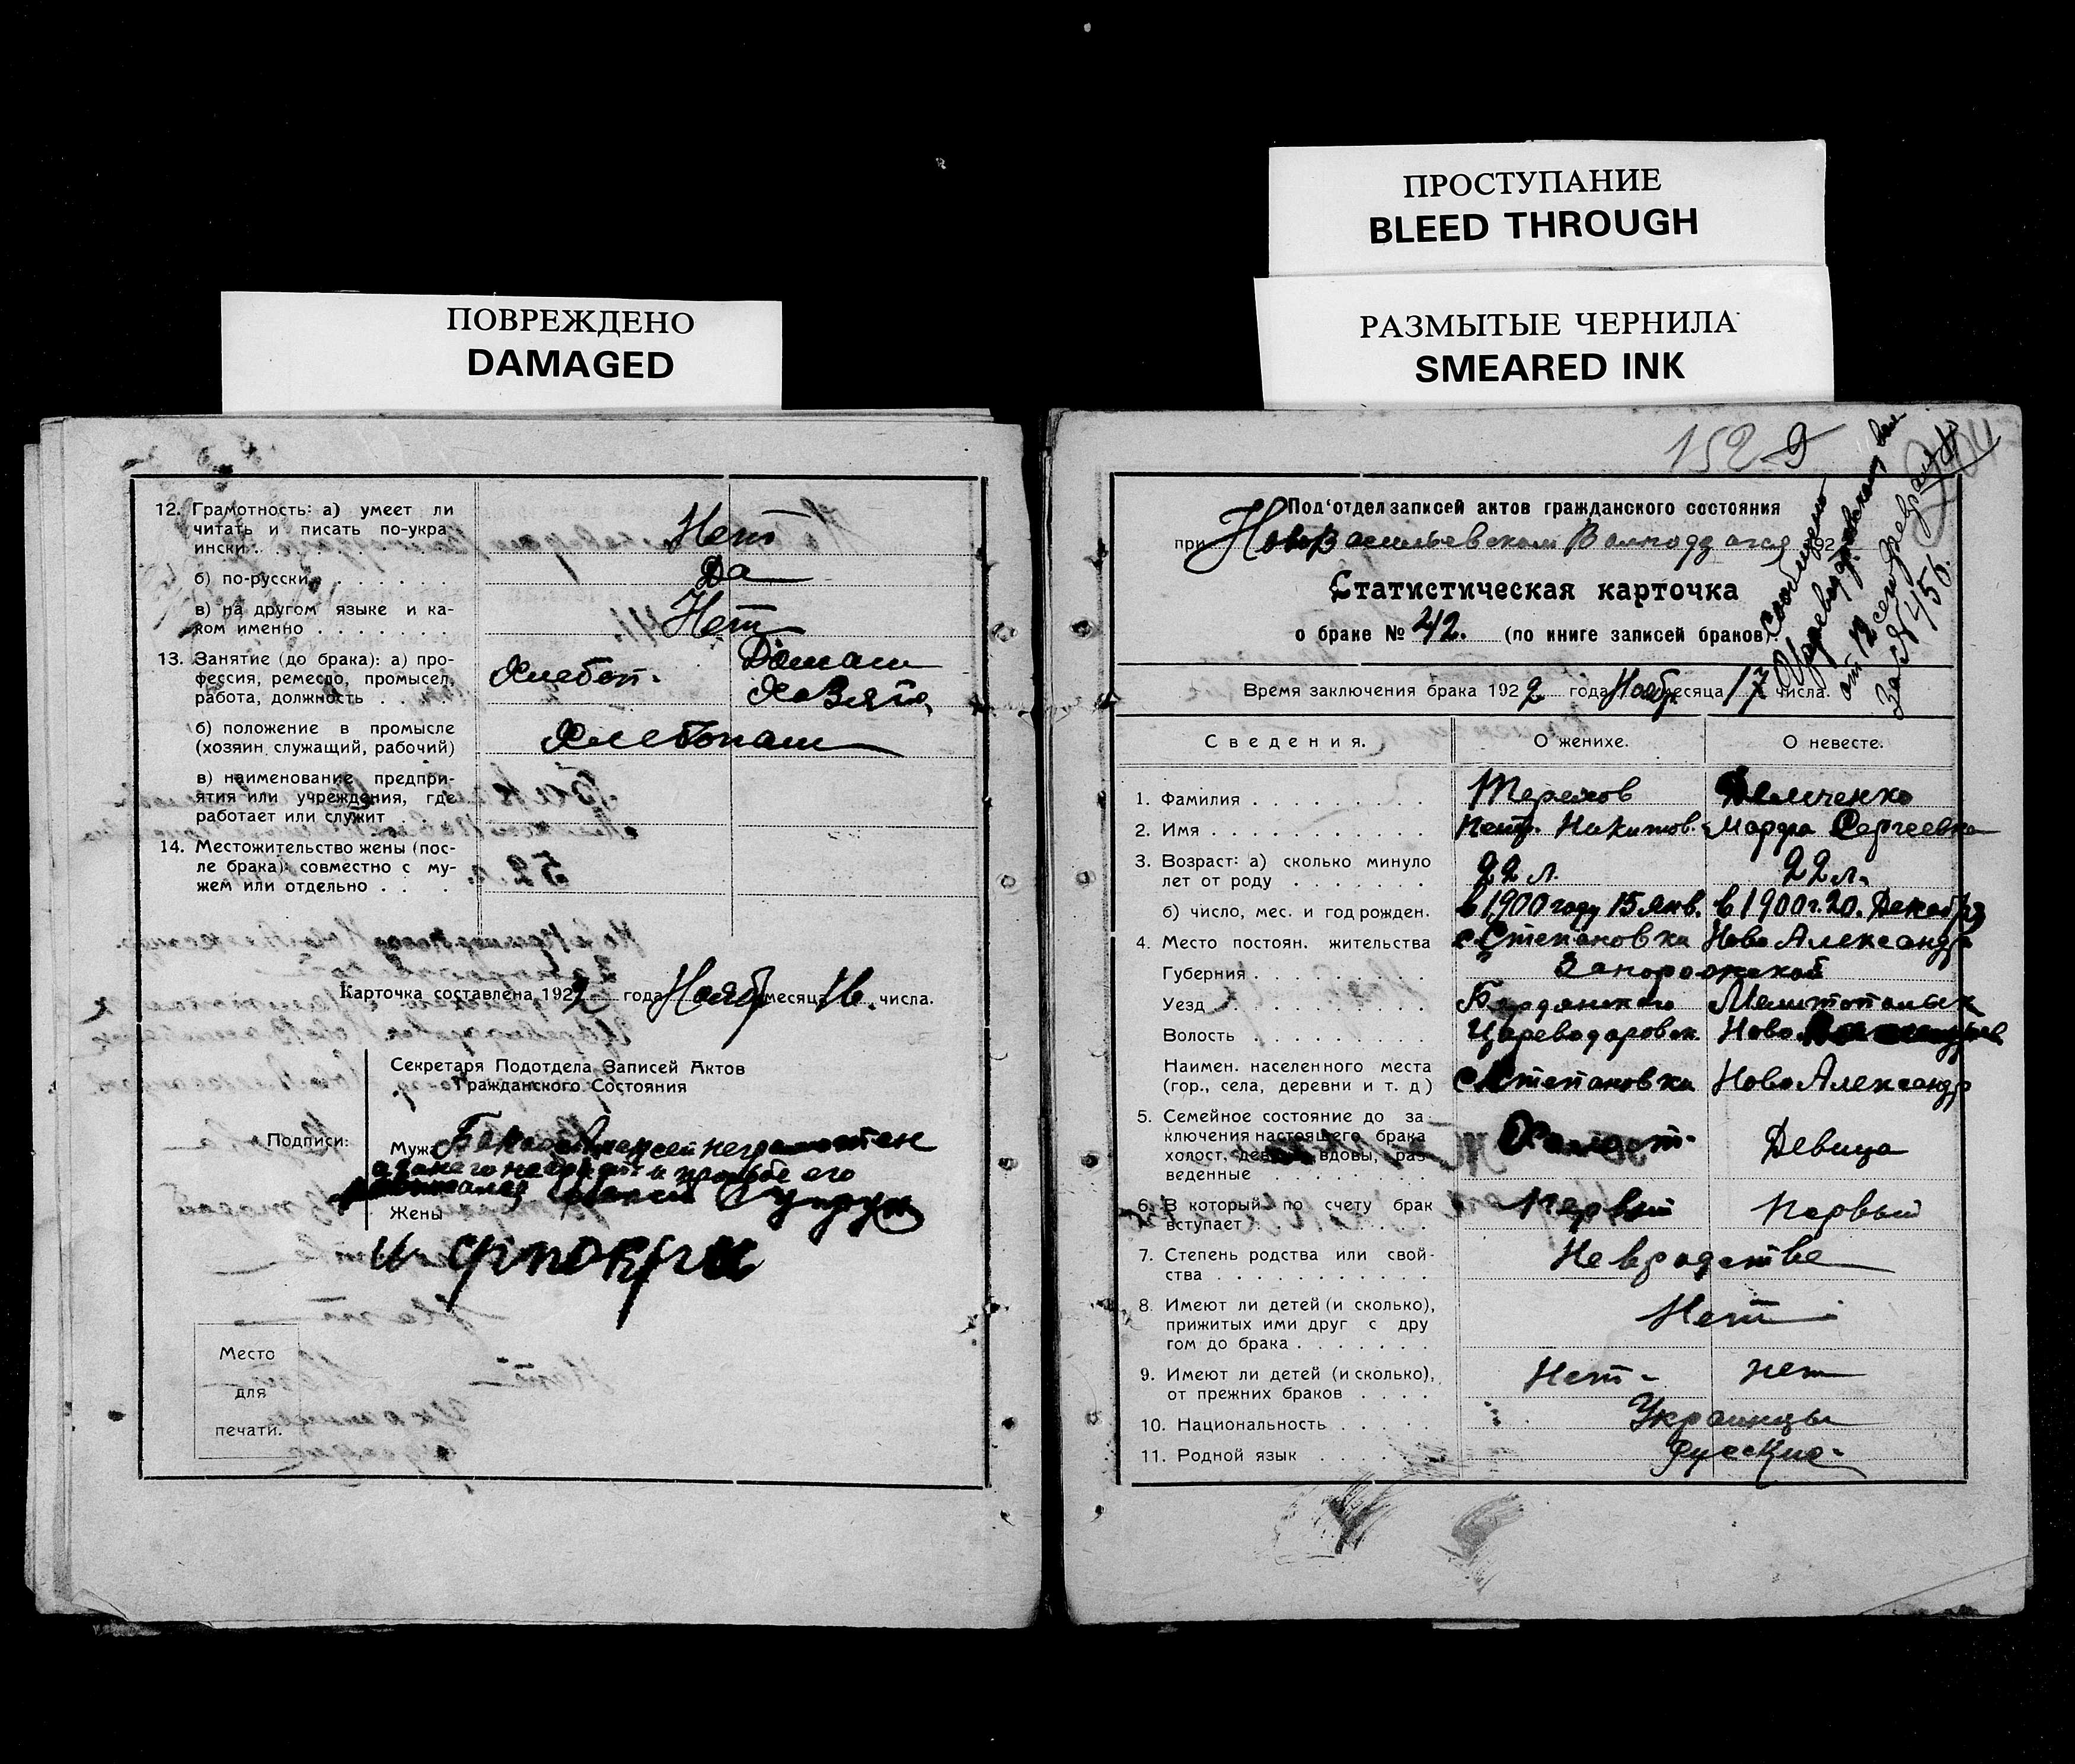 ПОВРЕЖДЕНО
DAMAGED
12. Грамотность: а) умеет ли
читать и писать по-укра
ински . . . Нет
б) по-русски . . . . . . . Да
в) на другом языке и ка-
ком именно . . . . . . . Нет
13. Занятие (до брака): а) про-
фессия, ремесло, промысел,
работа, должность . . . . Хлебоп. Домаш Хозяйс
б) положение в промысле
(хозяин служащий, рабочий) Хлебопаш
в) наименование предпри-
ятия или учреждения, где
работает или служит .
14. Местожительство жены (пос-
ле брака): совместно с му-
жем или отдельно . . . .
Карточка составлена 1922 года Ноябр месяца 16. числа.
Секретаря Подотдела Записей Актов
Гражданского Состояния
Подписи:
Муж Алексей неграмотен
а за него неграмот и прозьбе его
Супрун
Жены
ПРОСТУПАНИЕ
BLEED THROUGH
РАЗМЫТЫЕ ЧЕРНИЛА
SMEARED INK
152 9
Под'отдел записей актов гражданского состояния
при НовоВасильевском 192
Статистическая карточка
о браке № 42. (по книге записей браков)
Сообщено
Цареводаровском вол
от 12 сего февраля
За № 456.
Время заключения брака 1922 года Ноябр месяца 17 числа.
Сведения. О женихе. О невесте.
1. Фамилия . . . . . . . . . Терехов Демченко
2. Имя . . . . . . . . . . . Петр. Никитов. Марфа Сергеевна
3. Возраст: а) сколько минуло
лет от роду . . . . . . . 22 л. 22 л.
б) число, мес. и год рожден. в 1900 году 15 янв. в 1900 г. 20. Декабр
4. Место постоян. жительства с. Степановка Ново Александр
Губерния . . . . . . . . . Запорожской
Уезд . . . . . . . . . . . Бердянского Мелитопольск
Волость . . . . . . . . . Цареводаровск. Ново
Наимен. населенного места
(гор., села, деревни и т. д) с Степановка Ново Александр
5. Семейное состояние до за
ключения настоящего брака
холост, вдовы, раз
веденные . . . . . . . Холост. Девица
6. В который по счету брак
вступает . . . . . . . . Первый Первый
7. Степень родства или свой-
ства . . . . . . . . . . . Не в родстве
8. Имеют ли детей (и сколько),
прижитых ими друг с дру
гом до брака . . . . . . . Нет
9. Имеют ли детей (и сколько),
от прежних браков . . . . Нет - нет
10. Национальность . . . . . Украинцы
11. Родной язык . . . . . Русские
Место
для
печати.